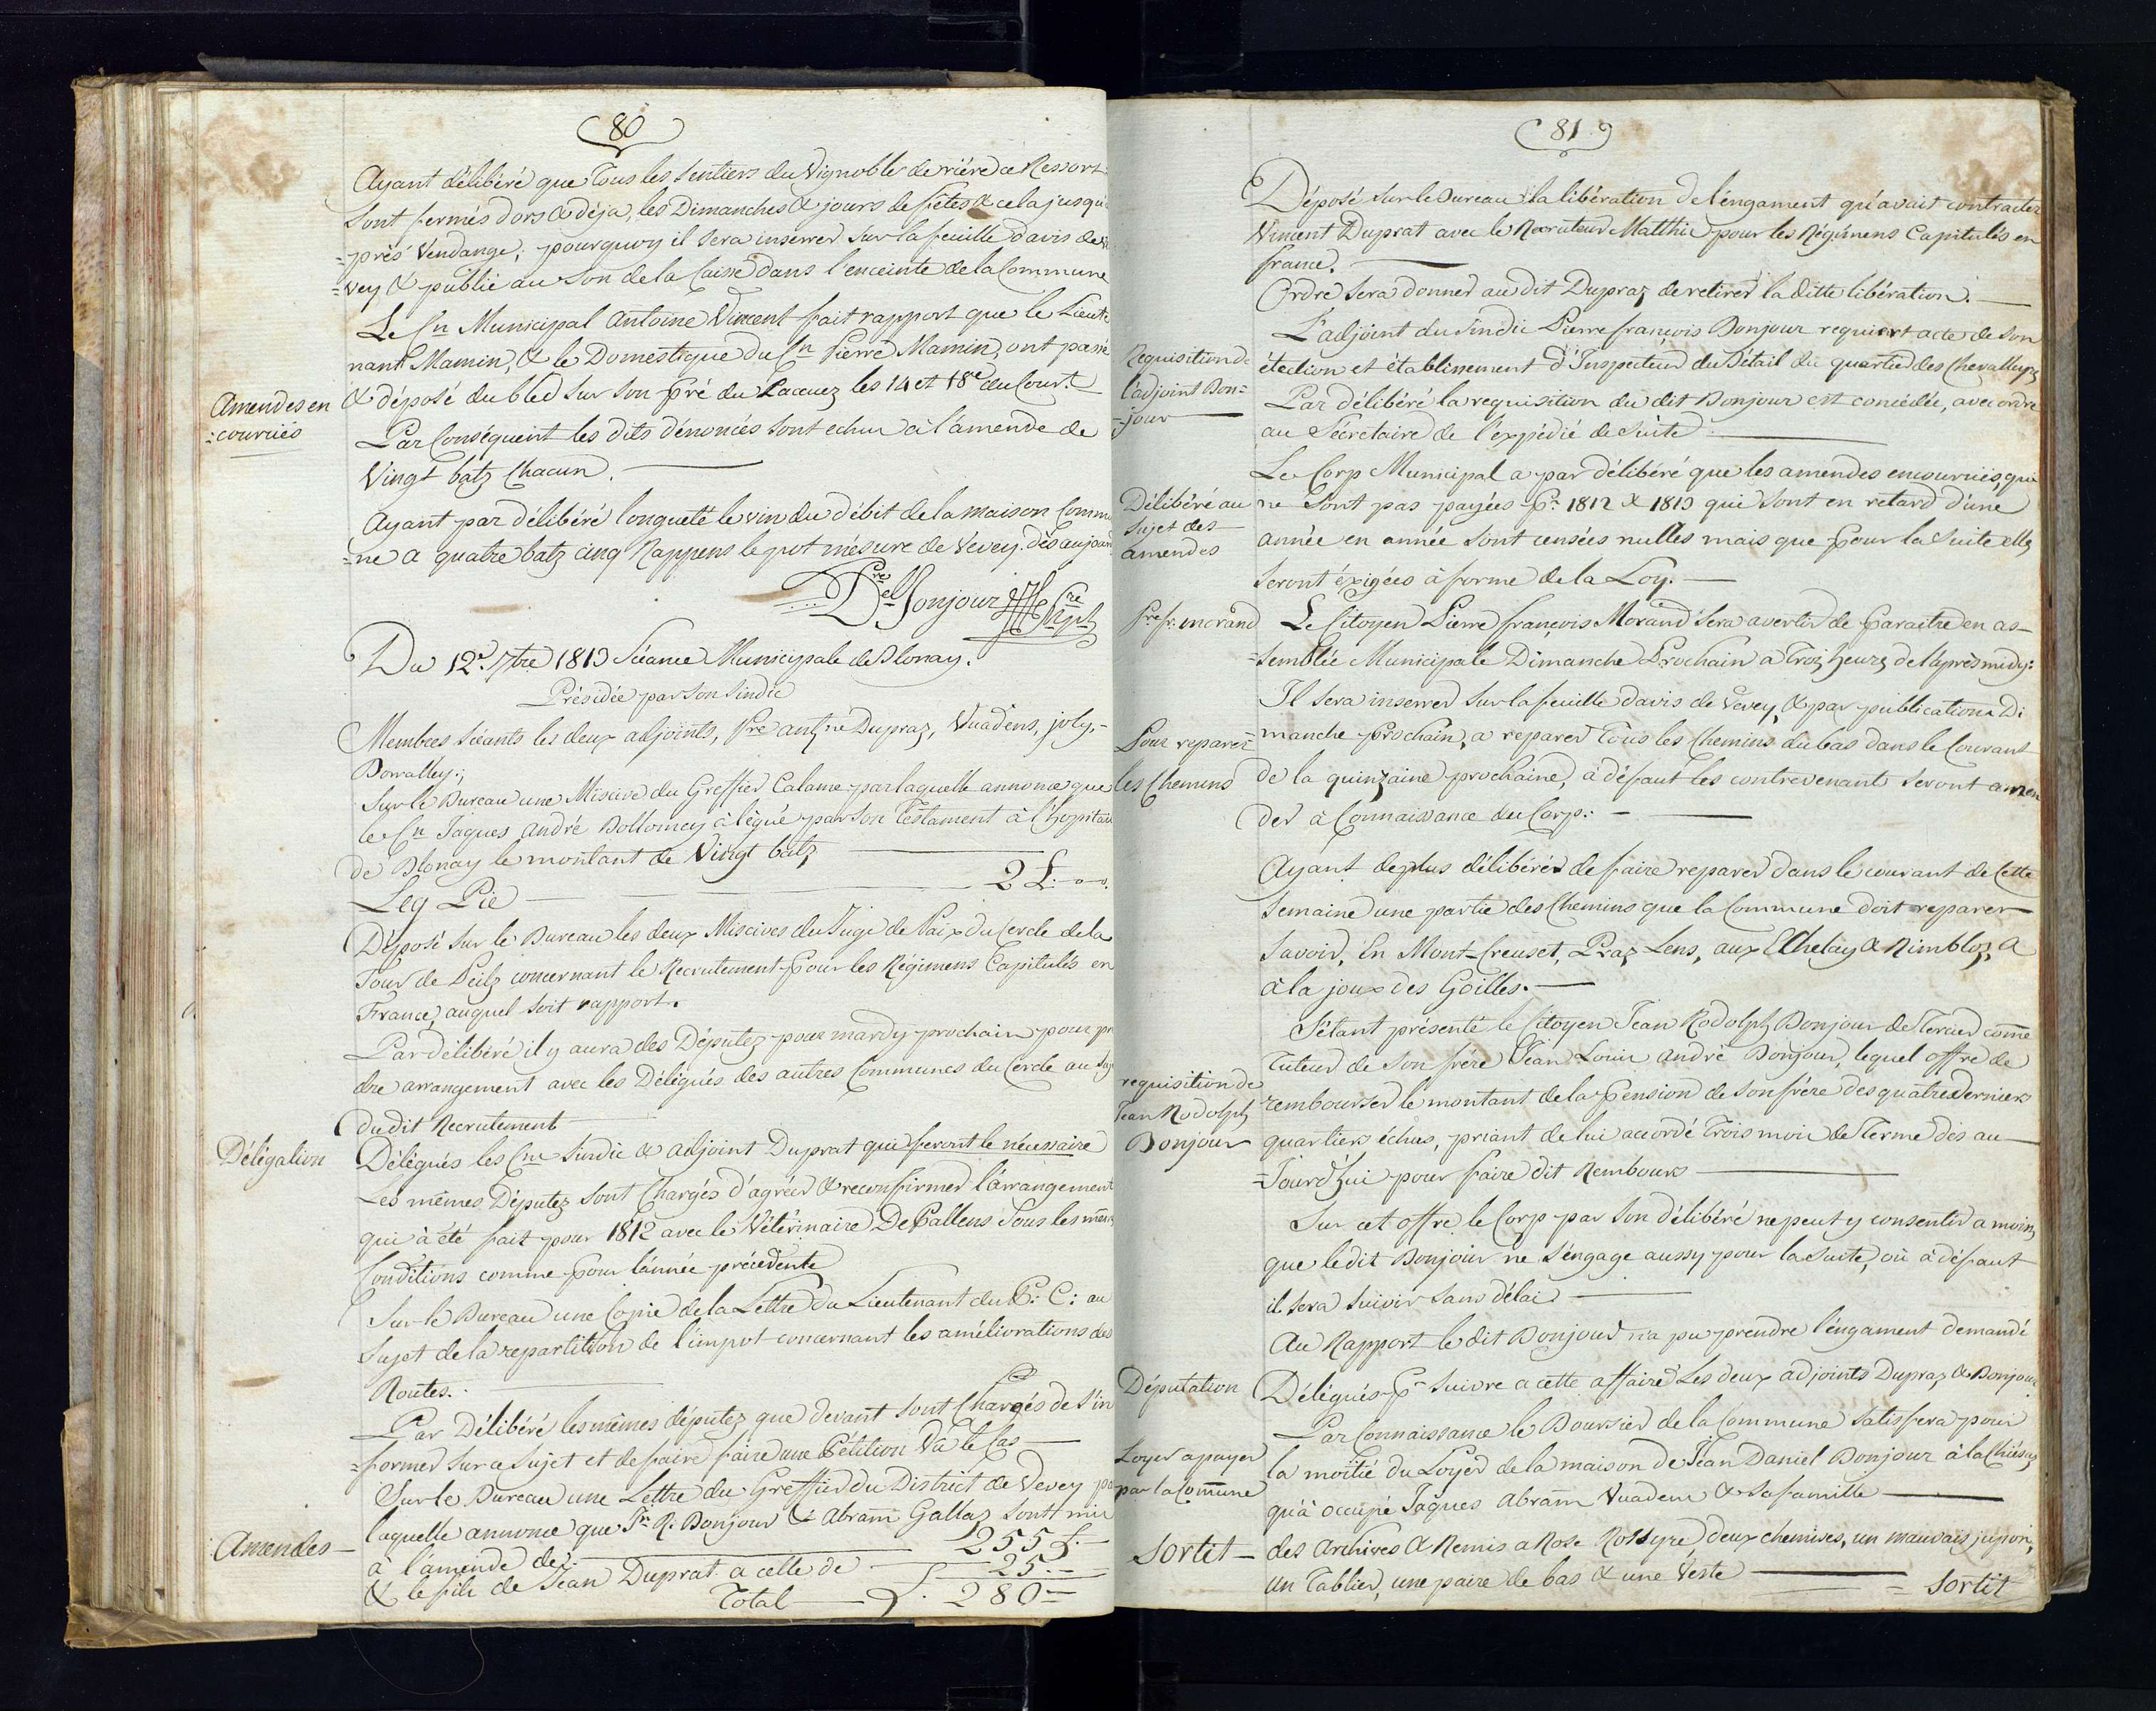 80
Ayant délibéré que Tous les Sentiers du Vignoble derière ce Ressort
Sont fermés dors & déja, les Dimanches & jours de fêtes & cela jusqu'
=près Vendange; pourquoy il sera inserrer sur la feuille davis de
=vey & publié au Son de la Caisse dans l'enceinte de la Commune
Le Cn Municipal Antoine Vincent fait rapport que le Lieute
nant Mamin, & le Domestique du Cn Pierre Mamin, ont passé
Amendes en
=courrües
& déposé du bled sur son pré du Pacquez les 14 et 18e du Cour.t
Par Conséquent les dits dénoncés sont echus à l'amende de
Vingt batz Chacun.
Ayant par délibéré longuetté le vin du débit de la maison Commu
=ne a quatre batz cinq Rappens le pot mésure de Vevey. Dès aujour
Bonjour
Du 12e 7bre 1813 Séance Municipale de Blonay.
Présidée par son Sindic
Membres Séants les deux adjoints, Pre antne Dupraz, Vuadens, joly,
Dovalley.;
Sur le Bureau une Miscive du Greffier Calame par laquelle annonce que
le Cn Jaques André Dollomey à légué par Son Testament à l'hopital
de Blonay le montant de Vingt batz
Leg Pie — 2 L. " " .
Déposé sur le Bureau les deux Miscives du Juge de Paix du Cercle de la
Tour de Peilz concernant le Recrutement pour les Régimens Capitulés en
France, auquel soit rapport.
Par délibéré il y aura des Députez pour mardy prochain pour pr
dre arrangement avec les Délégués des autres Communes du Cercle au Suj
du dit Recrutement
Délégation
Délégués les Cns Sindic & adjoint Duprat qui feront le nécessaire
Les mêmes Députez sont Chargés d'agréer & reconfirmer l'arrangement
qui à été fait pour 1812 avec le Vétérinaire DePallens Sous les mêm
Conditions comme pour lannée précédente
Sur le Bureau une Copie de la Lettre du Lieutenant du P: C: au
Sujet de la repartition de l'impot concernant les améliorations des
Routes.
Par Délibéré les mêmes députez que devant sont Chargés de s'in
=former sur ce Sujet et de faire faire une Pétition Va le Cas
Sur le Bureau une Lettre du Greffier du District de Vevey pa
laquelle annonce que Jn R: Bonjour & Abram Gallaz sont mis
Amendes
à l'amende de: — 255 £.
& le fils de Jean Duprat a celle de — 25.
Total — £. 280
81
Déposé sur le Bureau la libération de l'éngament qu'avait contracter
Vincent Duprat avec le Recruteur Matthie pour les Régimens Capitulés en
france.
Ordre sera donner au dit Dupraz de retirer la ditte libération.
Requisition de
l'adjoint Bon=
=jour
L'adjoint du Sindic Pierre françois Bonjour requiert acte de son
étection et établissement d'Inspecteur du Bétail du quartier des Chevalleyres
Par délibéré la requisition du dit Bonjour est concédée, avec ordre
au Sécrétaire de l'expédié de Suite
Délibéré au
Sujet des
amendes
Le Corp Municipal a par délibéré que les amendes encourrües, qui
ne sont pas payées pr 1812 & 1813 qui sont en retard d'une
année en année sont censées nulles mais que pour la suite elles
Seront éxigées à forme de la Loy.
Pre fs morand
Le Citoyen Pierre françois Morand Sera avertir de Paraitre en as
=semblée Municipale Dimanche Prochain à Trois heures de l'après midy:
Pour reparer
les Chemins
Il sera inserrer sur la feuille davis de Vevey, & par publication Di
manche prochain, a reparer Tous les Chemins du bas dans le Courant
de la quinzaine prochaine, à défaut les contrevenants Seront amen
der à Connaissance du Corp:
Ayant deplus délibérér de faire reparer dans le courant de Cette
Semaine une partie des Chemins que la Commune doit reparer
Savoir, En Mont-Creuset, Praz Lens, aux Chelay & Rimbloz, &
à la joux des Goilles.
requisition de
Jean Rodolph
Bonjour
S'étant présenté le Citoyen Jean Rodolph Bonjour de Tercier come
Tuteur de son frère Jean Louis André Bonjour, lequel offre de
rembourser le montant de la pension de son frère des quatre derniers
quartiers échus, priant de lui accordé Trois mois de Terme dès au
=Jourd'hui pour faire dit Rembours
Sur cet offre le Corp par Son délibéré ne peut y consentir a moins
que ledit Bonjour ne s'éngage aussy pour la Suite, où à défaut
il sera Suivir Sans délai
Au Rapport le dit Bonjour na pu prendre l'éngament demandé
Députation
Délégués pr Suivre a cette affaire Les deux adjoints Dupraz & Bonjour
Loyer a payer
par la Comune
Par Connaissance le Boursier de la Commune Satisfera pour
la moitié du Loyer de la maison de Jean Daniel Bonjour à la Chiésaz
qu'à occupé Jaques Abram Vuadens & sa famille
Sortit
des Archives & Remis a Rose Rossyre, deux chemises, un mauvais jupon,
Un Tablier, une paire de bas & une Veste
= Sortit